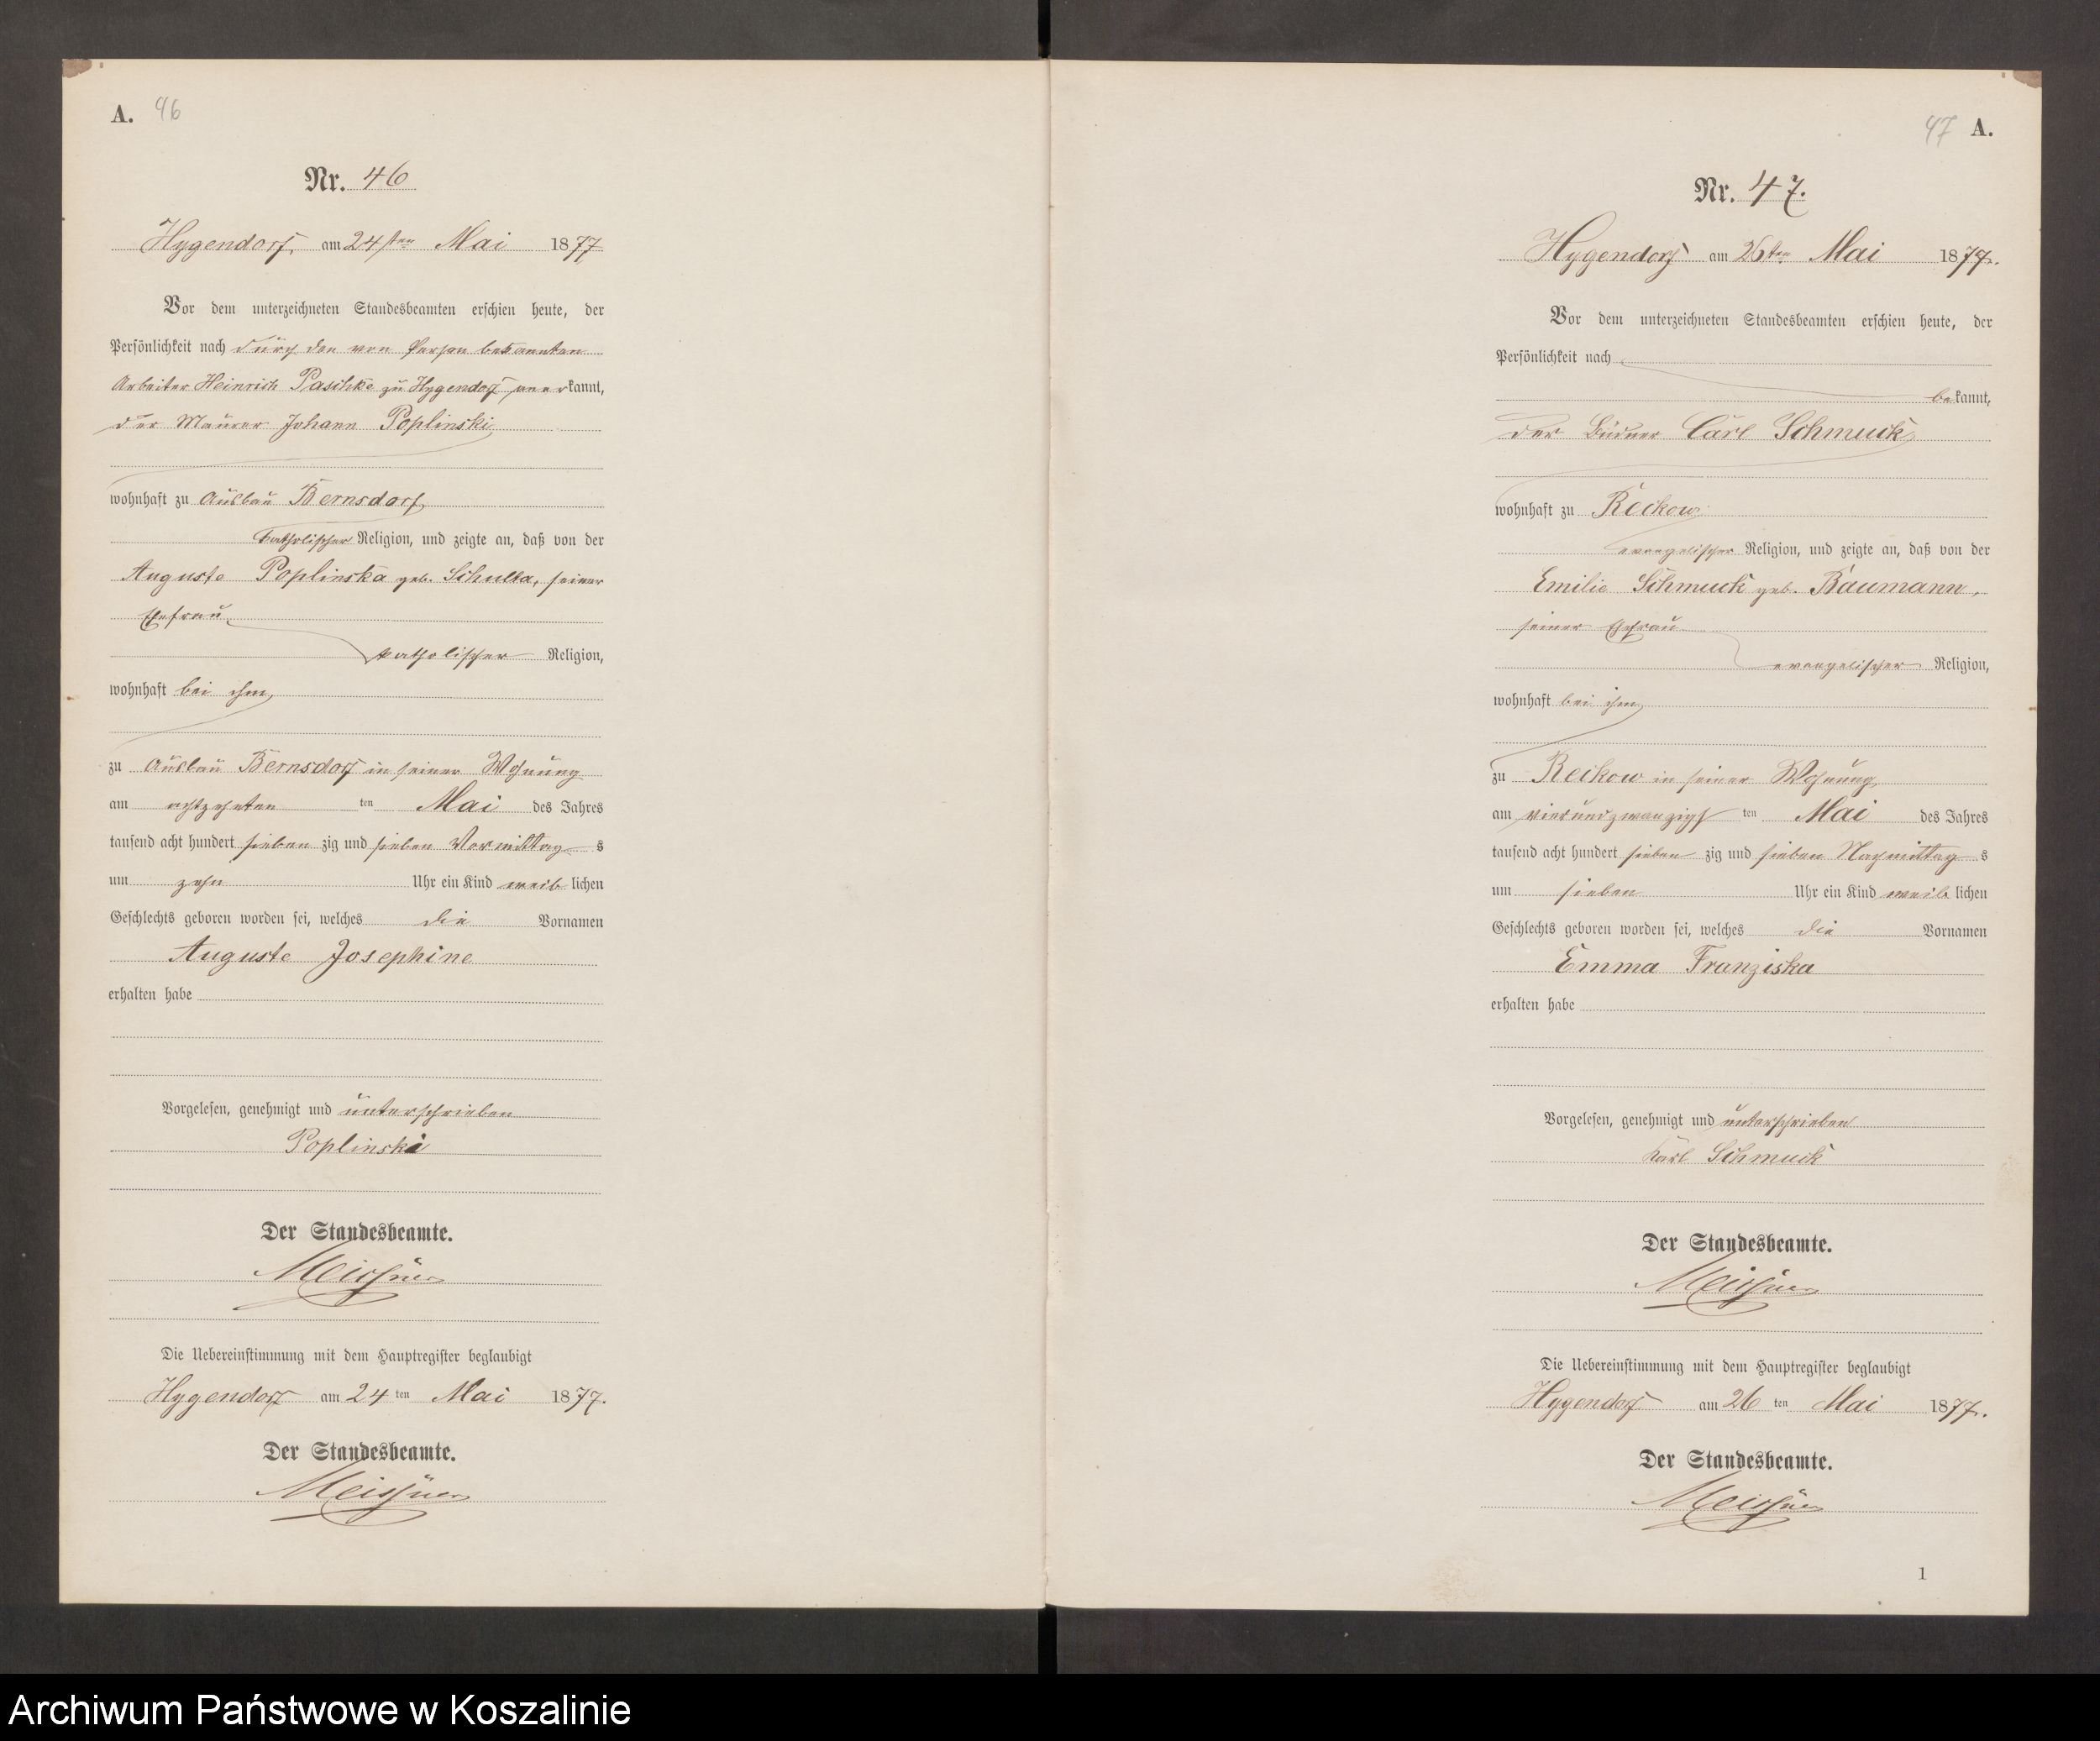 A. 46
Nr. 46
Hygendorf, am 24sten Mai 1877
Vor dem unterzeichneten Standesbeamten erschien heute, der
Persönlichkeit nach durch den von Person bekannten
Arbeiter Heinrich Paschke zu Hygendorf anerkannt,
der Maurer Johann Poplinski
wohnhaft zu Ausbau Bernsdorf,
katholischer Religion, und zeigte an, daß von der
Auguste Poplinska geb. Schulta, seiner
Ehefrau
katholischer Religion,
wohnhaft bei ihm,
zu Ausbau Bernsdorf in seiner Wohnung
am achtzehnten ten Mai des Jahres
tausend acht hundert sieben zig und sieben Vormittag s
um zehn Uhr ein Kind weib lichen
Geschlechts geboren worden sei, welches die Vornamen
Auguste Josephine
erhalten habe
Vorgelesen, genehmigt und unterschrieben
Poplinski
Der Standesbeamte.
Meissner
Die Uebereinstimmung mit dem Hauptregister beglaubigt
Hygendorf am 24 ten Mai 1877.
Der Standesbeamte.
Meissner
47 A.
Nr. 47.
Hygendorf am 26ten Mai 1877.
Vor dem unterzeichneten Standesbeamten erschien heute, der
Persönlichkeit nach
bekannt,
der Büdner Carl Schmuck
wohnhaft zu Reckow
evangelischer Religion, und zeigte an, daß von der
Emilie Schmuck geb. Baumann,
seiner Ehefrau
evangelischer Religion,
wohnhaft bei ihm,
zu Reckow in seiner Wohnung
am vierundzwanzigs ten Mai des Jahres
tausend acht hundert sieben zig und sieben Nachmittag s
um sieben Uhr ein Kind weib lichen
Geschlechts geboren worden sei, welches die Vornamen
Emma Franziska
erhalten habe
Vorgelesen, genehmigt und unterschrieben
Karl Schmuck
Der Standesbeamte.
Meissner
Die Uebereinstimmung mit dem Hauptregister beglaubigt
Hygendorf am 26 ten Mai 1877.
Der Standesbeamte.
Meissner
1
Archiwum Państwowe w Koszalinie